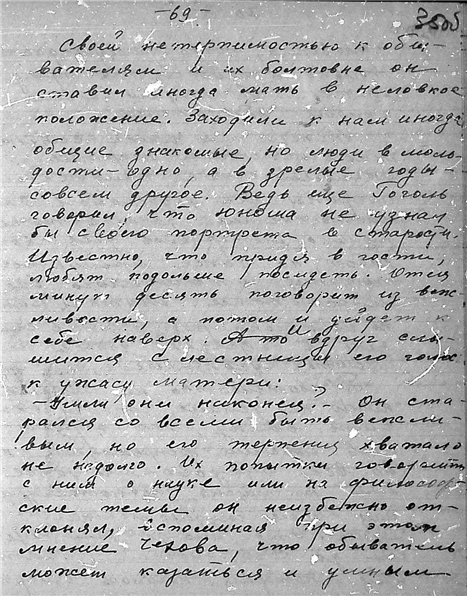 -69-
350б
Своей нетерпимостью к обы-
вателям и их болтовне он
ставил иногда мать в неловкое
положение. Заходили к нам иногда
общие знакомые, но люди в моло-
дости - одно, а в зрелые годы -
совсем другое. Ведь еще Гоголь
говорил, что юноша не узнал
бы своего портрета в старости.
Известно, что придя в гости,
любят подольше посидеть. Отец
минут десять поговорит из веж-
ливости, а потом и уйдет к
себе наверх. А то и вдруг слы-
шится с лестницы его голос
к ужасу матери:
- Ушли они наконец? - Он ста-
рался со всеми быть вежли-
вым, но его терпения хватало
не надолго. Их попытки говорить
с ним о науке или на философ-
ские темы он неизбежно от-
клонял, вспоминая при этом
мнение Чехова, что обыватель
может казаться и умным